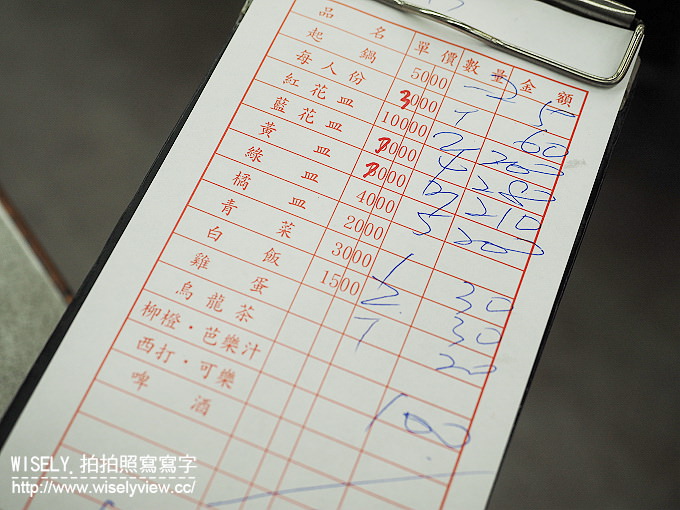 品名 單價 數量 金額
起鍋 5000
每人份 3000 60
紅花皿 10000 2 200
藍花皿 000 4 280
黃皿 000 7 210
綠皿 4000 5 200
橘皿 2000
青菜 3000 1 30
白飯 1500 2 30
雞蛋 1 20
烏龍茶
柳橙·芭樂汁 100
西打·可樂
啤酒
WISELY 拍拍照寫寫字
http://www.wiselyview.cc/